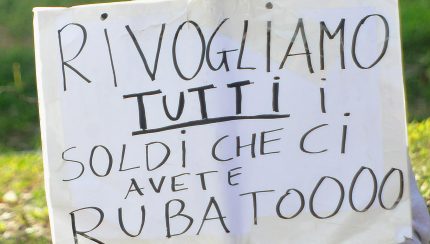 RiVOGLiAMO
TUTTi i
SOLDi CHE Ci
AVETE
RUBATOOOO